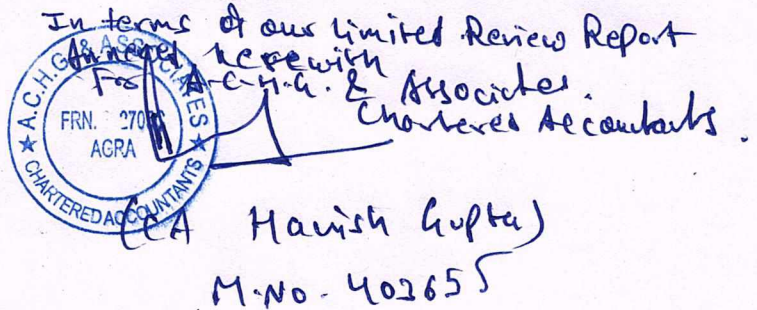 In terms of our limited Review Report
Annexed herewith
For A.C.H.G. & Associates.
Chartered Accountants.
(CA Manish Gupta)
M.No. 403655
A.C.H.G. & ASSOCIATES
FRN.
AGRA
CHARTERED ACCOUNTANTS